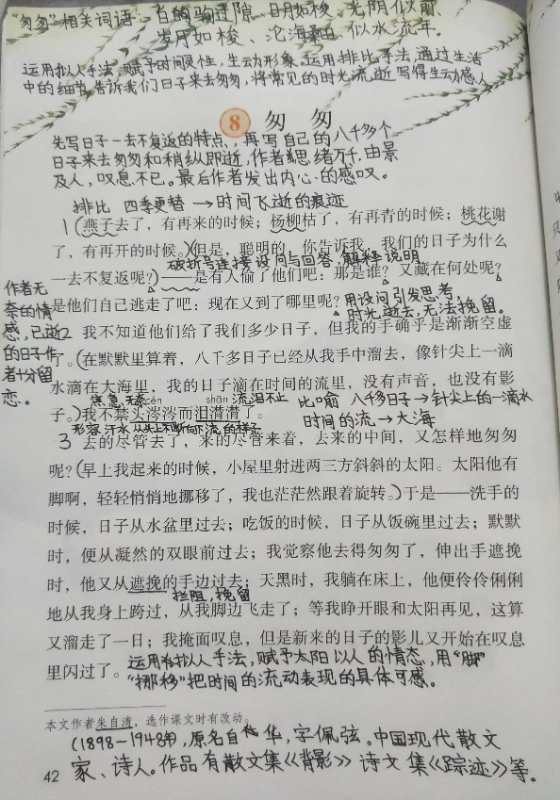 "匆匆"相关词语：白驹过隙、日月如梭、光阴似箭、
岁月如梭、沧海桑田、似水流年。
运用拟人手法，赋予时间灵性，生动形象。运用排比手法，通过生活
中的细节告诉我们日子来去匆匆，将常见的时光流逝写得生动感人
8 匆匆
先写日子一去不复返的特点，再写自己的八千多个
日子来去匆匆和稍纵即逝，作者思绪万千，由景
及人，叹息不已。最后作者发出内心的感叹。
排比 四季更替→时间飞逝的痕迹
1（燕子去了，有再来的时候；杨柳枯了，有再青的时候；桃花谢
了，有再开的时候。）但是，聪明的，你告诉我，我们的日子为什么
破折号连接设问与回答，解释说明
一去不复返呢？——是有人偷了他们吧：那是谁？又藏在何处呢？
是他们自己逃走了吧：现在又到了哪里呢？用设问引发思考，
时光逝去，无法挽留。
作者无
奈的情
感，已逝
的日子作
者十分留
恋。
2 我不知道他们给了我们多少日子，但我的手确乎是渐渐空虚
了。（在默默里算着，八千多日子已经从我手中溜去，像针尖上一滴
水滴在大海里，我的日子滴在时间的流里，没有声音，也没有影
焦急无奈 cén shān 流泪不止
子。）我不禁头涔涔而泪潸潸了。
比喻 八千多日子→针尖上的一滴水
时间的流→大海
形容汗水从头上不断向下流的样子
3 去的尽管去了，来的尽管来着，去来的中间，又怎样地匆匆
呢？（早上我起来的时候，小屋里射进两三方斜斜的太阳。太阳他有
脚啊，轻轻悄悄地挪移了，我也茫茫然跟着旋转。）于是——洗手的
时候，日子从水盆里过去；吃饭的时候，日子从饭碗里过去；默默
时，便从凝然的双眼前过去；我觉察他去得匆匆了，伸出手遮挽
时，他又从遮挽的手边过去；天黑时，我躺在床上，他便伶伶俐俐
拦阻，挽留
地从我身上跨过，从我脚边飞走了；等我睁开眼和太阳再见，这算
又溜走了一日；我掩面叹息，但是新来的日子的影儿又开始在叹息
里闪过了。
运用拟人手法，赋予太阳以人的情态，用"脚"
"挪移"把时间的流动表现的具体可感。
本文作者朱自清，选作课文时有改动。
（1898-1948年），原名自华，字佩弦。中国现代散文
42 家、诗人。作品有散文集《背影》诗文集《踪迹》等。